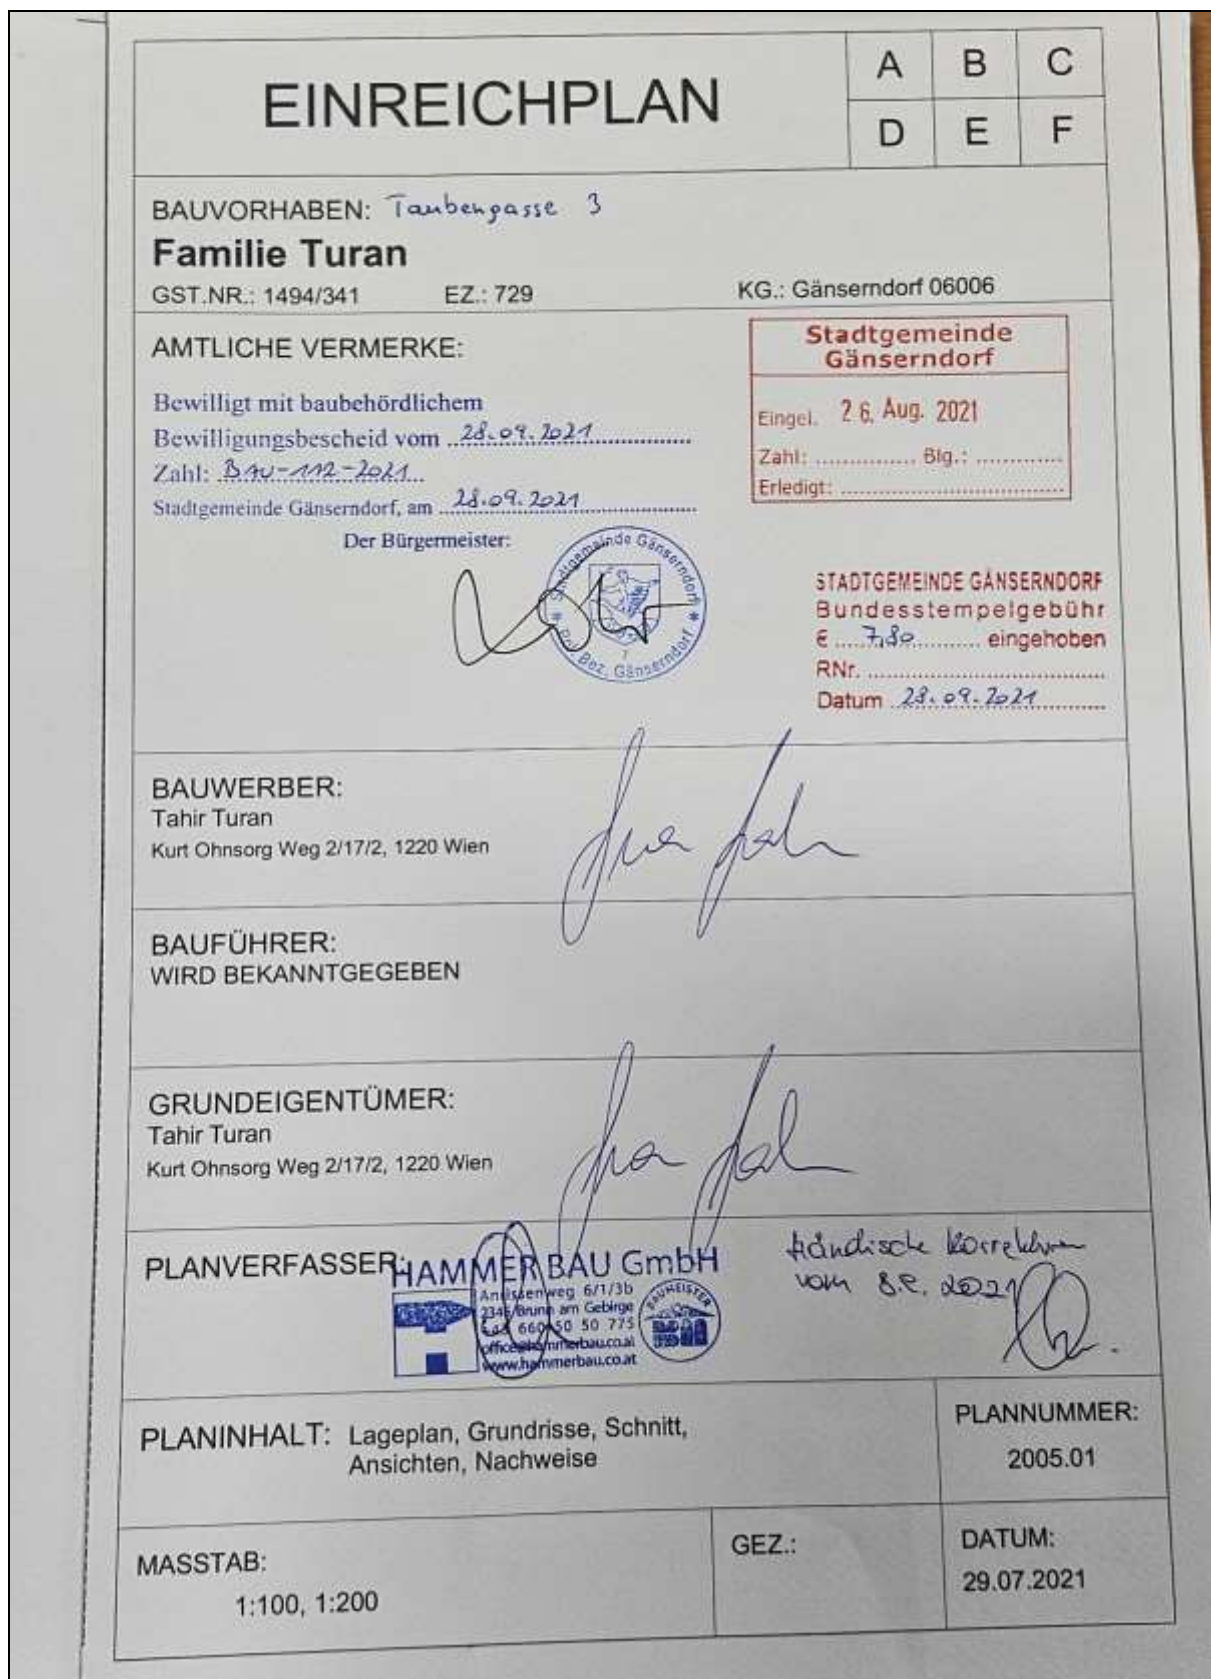 EINREICHPLAN
A B C
D E F
BAUVORHABEN: Taubengasse 3
Familie Turan
GST.NR.: 1494/341 EZ.: 729 KG.: Gänserndorf 06006
AMTLICHE VERMERKE:
Bewilligt mit baubehördlichem
Bewilligungsbescheid vom 28.09.2021
Zahl: BAU-112-2021
Stadtgemeinde Gänserndorf, am 28.09.2021
Der Bürgermeister:
Stadtgemeinde Gänserndorf
Pol. Bez. Gänserndorf
Stadtgemeinde
Gänserndorf
Eingel. 26. Aug. 2021
Zahl: Blg.:
Erledigt:
STADTGEMEINDE GÄNSERNDORF
Bundesstempelgebühr
€ 7,80 eingehoben
RNr.
Datum 28.09.2021
BAUWERBER:
Tahir Turan
Kurt Ohnsorg Weg 2/17/2, 1220 Wien
BAUFÜHRER:
WIRD BEKANNTGEGEBEN
GRUNDEIGENTÜMER:
Tahir Turan
Kurt Ohnsorg Weg 2/17/2, 1220 Wien
PLANVERFASSER:
HAMMER BAU GmbH
6/1/3b
Brunn am Gebirge
660 50 50 775
office@hammerbau.co.at
www.hammerbau.co.at
BAUMEISTER
Händische Korrekturen
vom 2021
PLANINHALT: Lageplan, Grundrisse, Schnitt,
Ansichten, Nachweise
PLANNUMMER:
2005.01
MASSTAB:
1:100, 1:200
GEZ.:
DATUM:
29.07.2021